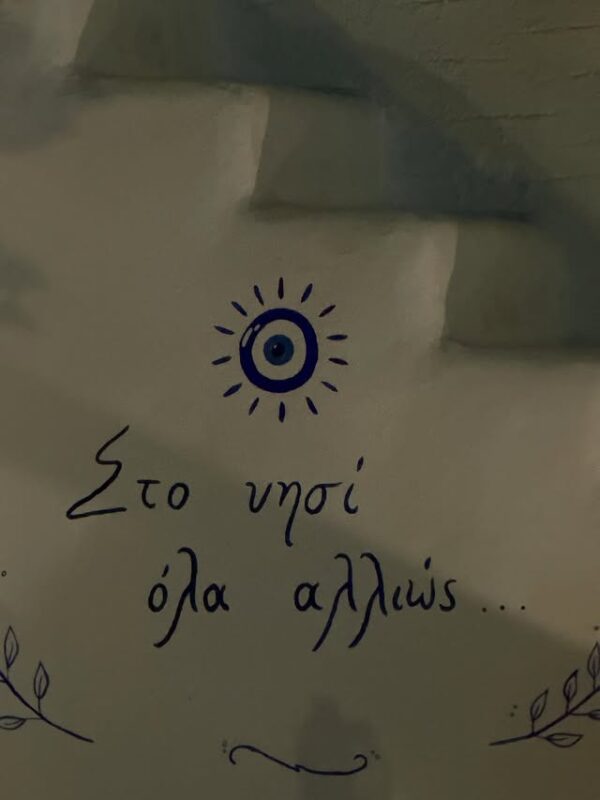 Στο νησί
όλα αλλιώς...